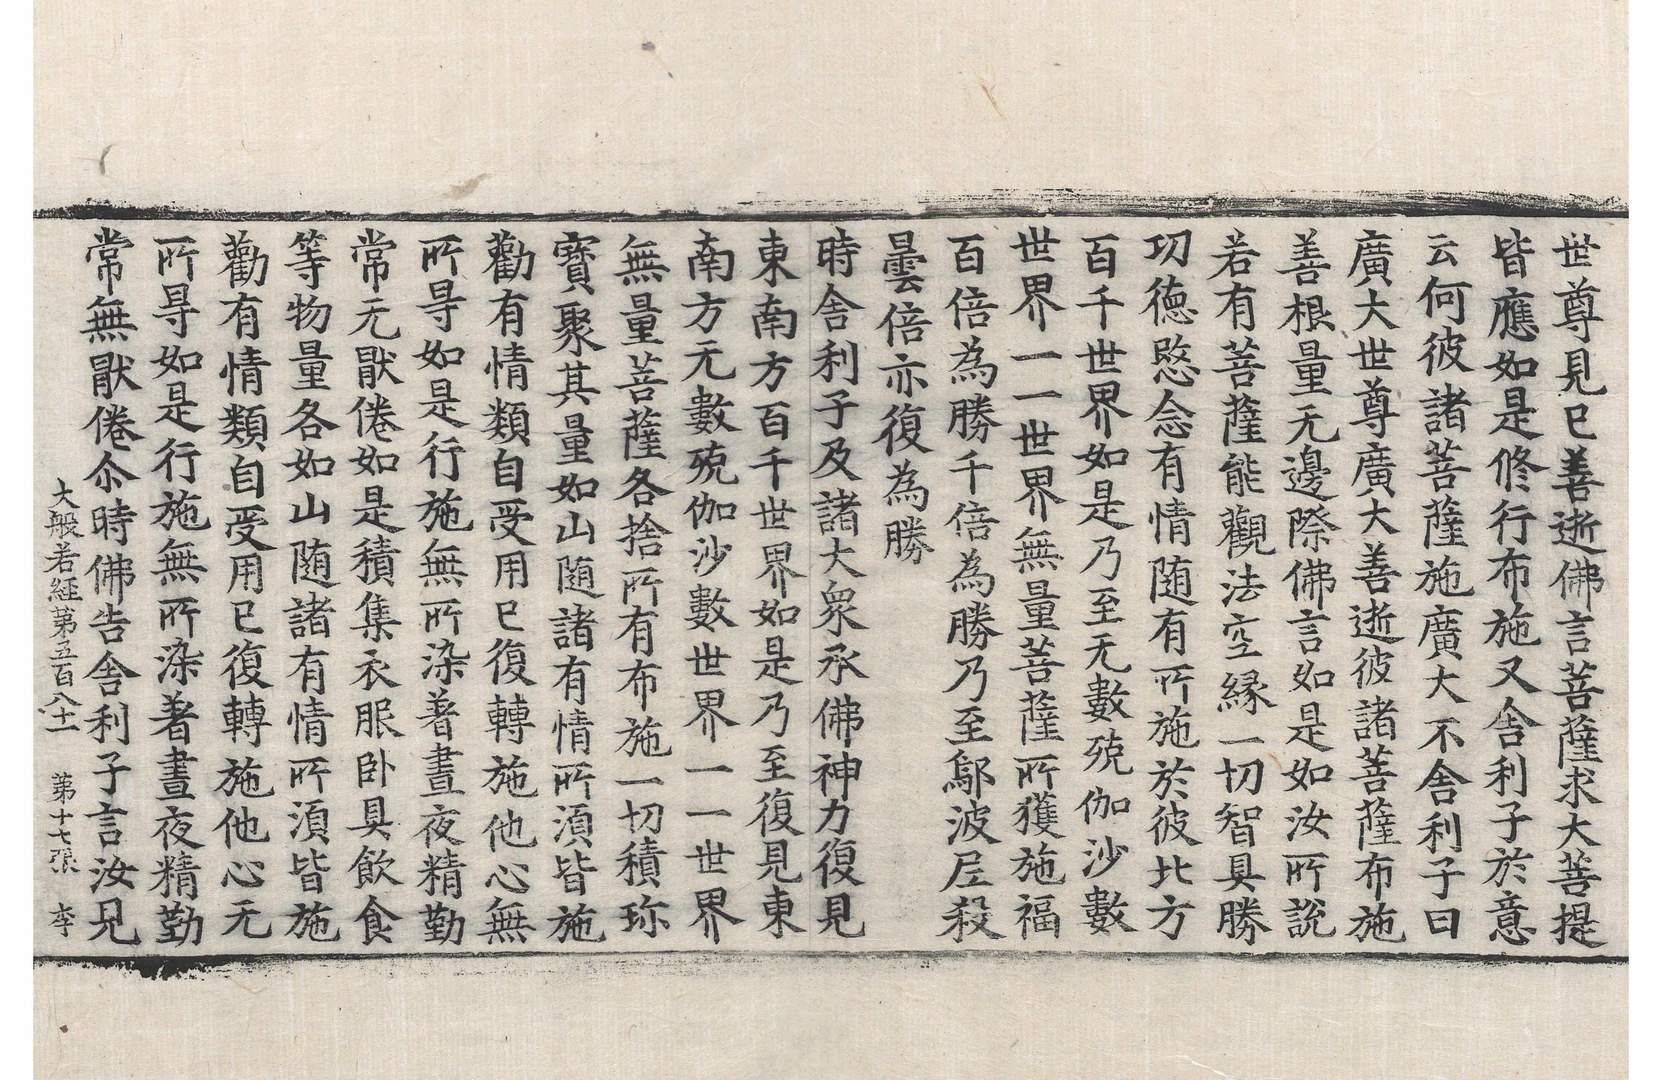 世尊見已善逝佛言菩薩求大菩提
皆應如是修行布施又舍利子於意
云何彼諸菩薩施廣大不舍利子曰
廣大世尊廣大善逝彼諸菩薩布施
善根量无邊際佛言如是如汝所說
若有菩薩能觀法空緣一切智具勝
功德愍念有情随有所施於彼比方
百千世界如是乃至无數殑伽沙數
世界一一世界無量菩薩所獲施福
百倍為勝千倍為勝乃至鄔波尼殺
曇倍亦復為勝
時舍利子及諸大眾承佛神力復見
東南方百千世界如是乃至復見東
南方无數殑伽沙數世界一一世界
無量菩薩各捨所有布施一切積珎
寶聚其量如山随諸有情所湏皆施
勸有情類自受用已復轉施他心無
所㝵如是行施無所染著晝夜精勤
常无猒倦如是積集衣服卧具飲食
等物量各如山随諸有情所湏皆施
勸有情類自受用已復轉施他心无
所㝵如是行施無所染著晝夜精勤
常無猒倦尒時佛告舍利子言汝見
大般若經第五百八十一 第十七張 李